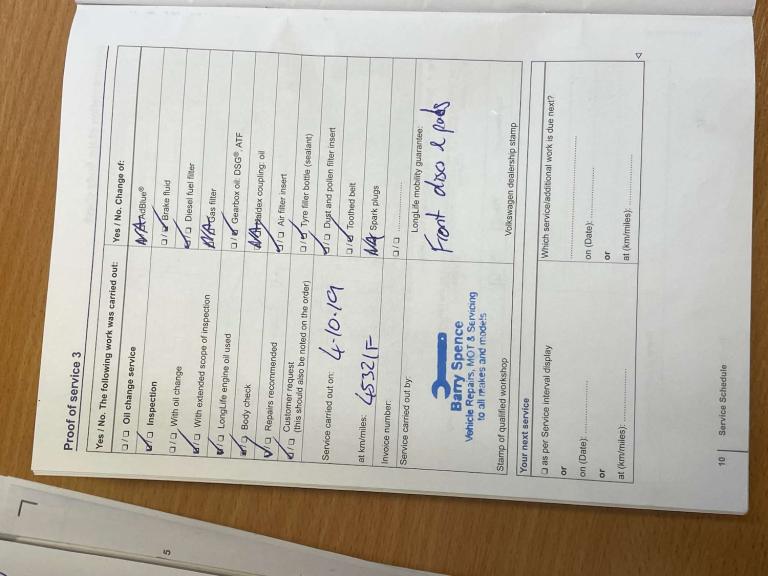 Proof of service 3
Yes / No. The following work was carried out:
❑ / ❑ Oil change service
❑ / ❑ Inspection
❑ / ❑ With oil change
❑ / ❑ With extended scope of inspection
❑ / ❑ LongLife engine oil used
❑ / ❑ Body check
❑ / ❑ Repairs recommended
❑ / ❑ Customer request
(this should also be noted on the order)
Service carried out on: 4.10.19
at km/miles:
Invoice number:
Service carried out by:
Barry Spence
Vehicle Repairs, MOT & Servicing
to all makes and models
Stamp of qualified workshop
Yes / No. Change of:
NA AdBlue®
❑ / ❑ Brake fluid
❑ / ❑ Diesel fuel filter
NA Gas filter
❑ / ❑ Gearbox oil: DSG®, ATF
NA Haldex coupling: oil
❑ / ❑ Air filter insert
❑ / ❑ Tyre filler bottle (sealant)
❑ / ❑ Dust and pollen filter insert
❑ / ❑ Toothed belt
NA Spark plugs
❑ / ❑ ..........
LongLife mobility guarantee:
Front discs & pads
Volkswagen dealership stamp
Your next service
❑ as per Service interval display
or
on (Date): ..........
or
at (km/miles): ..........
Which service/additional work is due next?
..........
on (Date): ..........
or
at (km/miles): ..........
10 Service Schedule
5